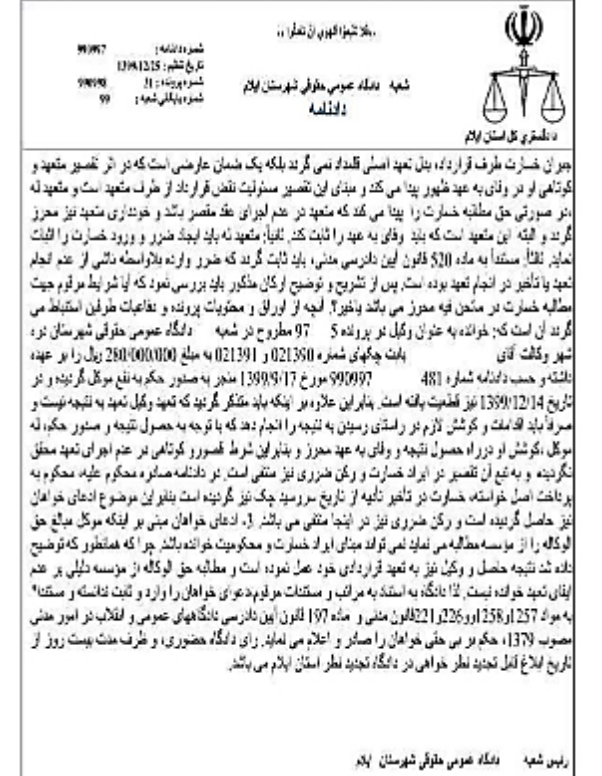 شماره دادنامه : 990997
تاریخ تنظیم : 1399/12/25
شماره پرونده :
شماره بایگانی شعبه : 99
شعبه دادگاه عمومی حقوقی شهرستان ایلام
دادنامه
دادگستری کل استان ایلام
جبران خسارت طرف قرارداد، بدل تعهد اصلی قلمداد نمی گردد بلکه یک ضمان عارضی است که در اثر تقصیر متعهد و
کوتاهی او در وفای به عهد ظهور پیدا می کند و مبنای این تقصیر مسئولیت نقض قرارداد از طرف متعهد است و متعهد له
،در صورتی حق مطالبه خسارت را پیدا می کند که متعهد در عدم اجرای عقد مقصر باشد و خودداری متعهد نیز محرز
گردد و البته این متعهد است که باید وفای به عهد را ثابت کند. ثانیاً: متعهد له باید ایجاد ضرر و ورود خسارت را اثبات
نماید. ثالثاً: مستنداً به ماده 520 قانون آیین دادرسی مدنی، باید ثابت گردد که ضرر وارده بلاواسطه ناشی از عدم انجام
تعهد یا تأخیر در انجام تعهد بوده است. پس از تشریح و توضیح ارکان مذکور باید بررسی نمود که آیا شرایط مرقوم جهت
مطالبه خسارت در مانحن فیه محرز می باشد یاخیر؟. آنچه از اوراق و محتویات پرونده و دفاعیات طرفین استنباط می
گردد آن است که: خوانده به عنوان وکیل در پرونده 5 97 مطروح در شعبه دادگاه عمومی حقوقی شهرستان دره
شهر وکالت آقای بابت چکهای شماره 021390 و 021391 به مبلغ 280/000/000 ریال را بر عهده
داشته و حسب دادنامه شماره 481 990997 مورخ 1399/9/17 منجر به صدور حکم به نفع موکل گردیده و در
تاریخ 1399/12/14 نیز قطعیت یافته است. بنابراین علاوه بر اینکه باید متذکر گردید که تعهد وکیل تعهد به نتیجه نیست و
صرفاً باید اقدامات و کوشش لازم در راستای رسیدن به نتیجه را انجام دهد که با توجه به حصول نتیجه و صدور حکم، له
موکل ،کوشش او درراه حصول نتیجه و وفای به عهد محرز و بنابراین شرط قصورو کوتاهی در عدم اجرای تعهد محقق
نگردیده و به تبع آن تقصیر در ایراد خسارت و رکن ضرری نیز منتفی است. در دادنامه صادره محکوم علیه، محکوم به
پرداخت اصل خواسته، خسارت در تأخیر تأدیه از تاریخ سررسید چک نیز گردیده است بنابراین موضوع ادعای خواهان
نیز حاصل گردیده است و رکن ضرری نیز در اینجا منتفی می باشد. 3. ادعای خواهان مبنی بر اینکه موکل مبالغ حق
الوکاله را از مؤسسه مطالبه می نماید نمی تواند مبنای ایراد خسارت و محکومیت خوانده باشد. چرا که همانطور که توضیح
داده شد نتیجه حاصل و وکیل نیز به تعهد قراردادی خود عمل نموده است و مطالبه حق الوکاله از مؤسسه دلیلی بر عدم
ایفای تعهد خوانده نیست. لذا دادگاه به استناد به مراتب و مستندات مرقوم،دعوای خواهان را وارد و ثابت ندانسته و مستنداً
به مواد 1257و1258و226و221قانون مدنی و ماده 197 قانون آیین دادرسی دادگاههای عمومی و انقلاب در امور مدنی
مصوب 1379، حکم بر بی حقی خواهان را صادر و اعلام می نماید. رای دادگاه حضوری، و ظرف مدت بیست روز از
تاریخ ابلاغ قابل تجدید نظر خواهی در دادگاه تجدید نظر استان ایلام می باشد.
رئیس شعبه دادگاه عمومی حقوقی شهرستان ایلام